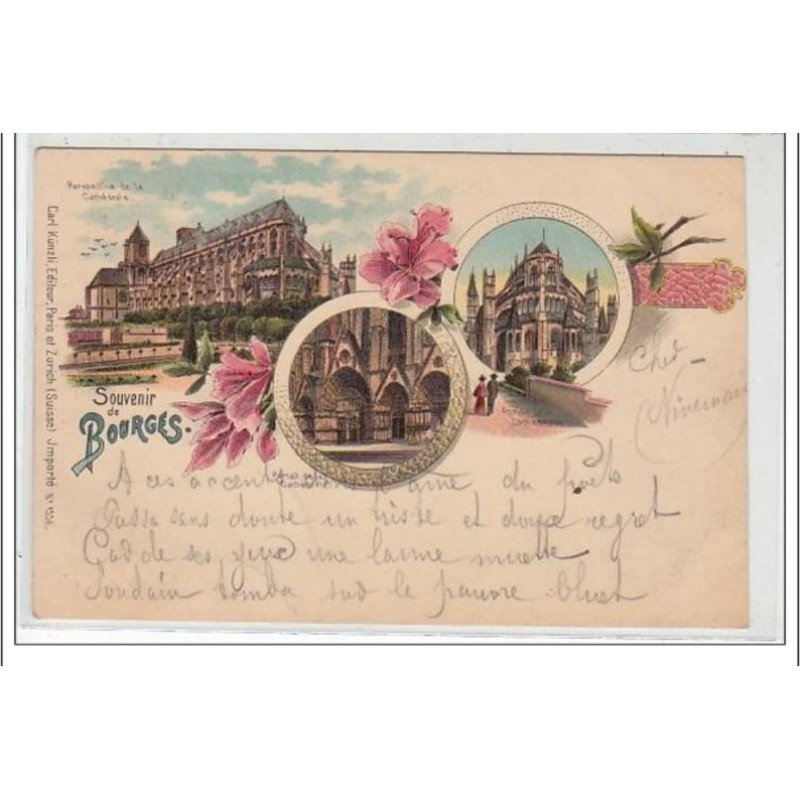 Perspective de la
Cathédrale.
Carl Künzli, Editeur, Paris et Zurich (Suisse) Importé
Souvenir
de
BOURGES.
Portail de la
Cathédrale
Cher
(Nivernais)
A ces accents l'âme du poète
Passa sans doute un triste et doux regret
Et de ses yeux une larme muette
Soudain tomba sur le pauvre bluet